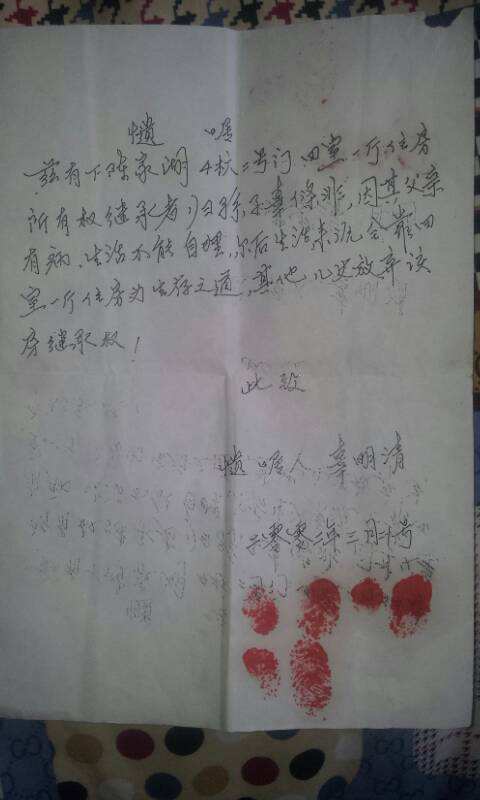 遗 嘱
兹有下陈家湖4栋二号门四室一厅住房
所有权继承者,归孙子章條非,因其父亲
有病,生活不能自理,尔后生活来沅会靠四
室一厅住房为生存之道,其他儿女放弃该
房继承权!
此致
遗嘱人 章明清
二零零三年三月十号